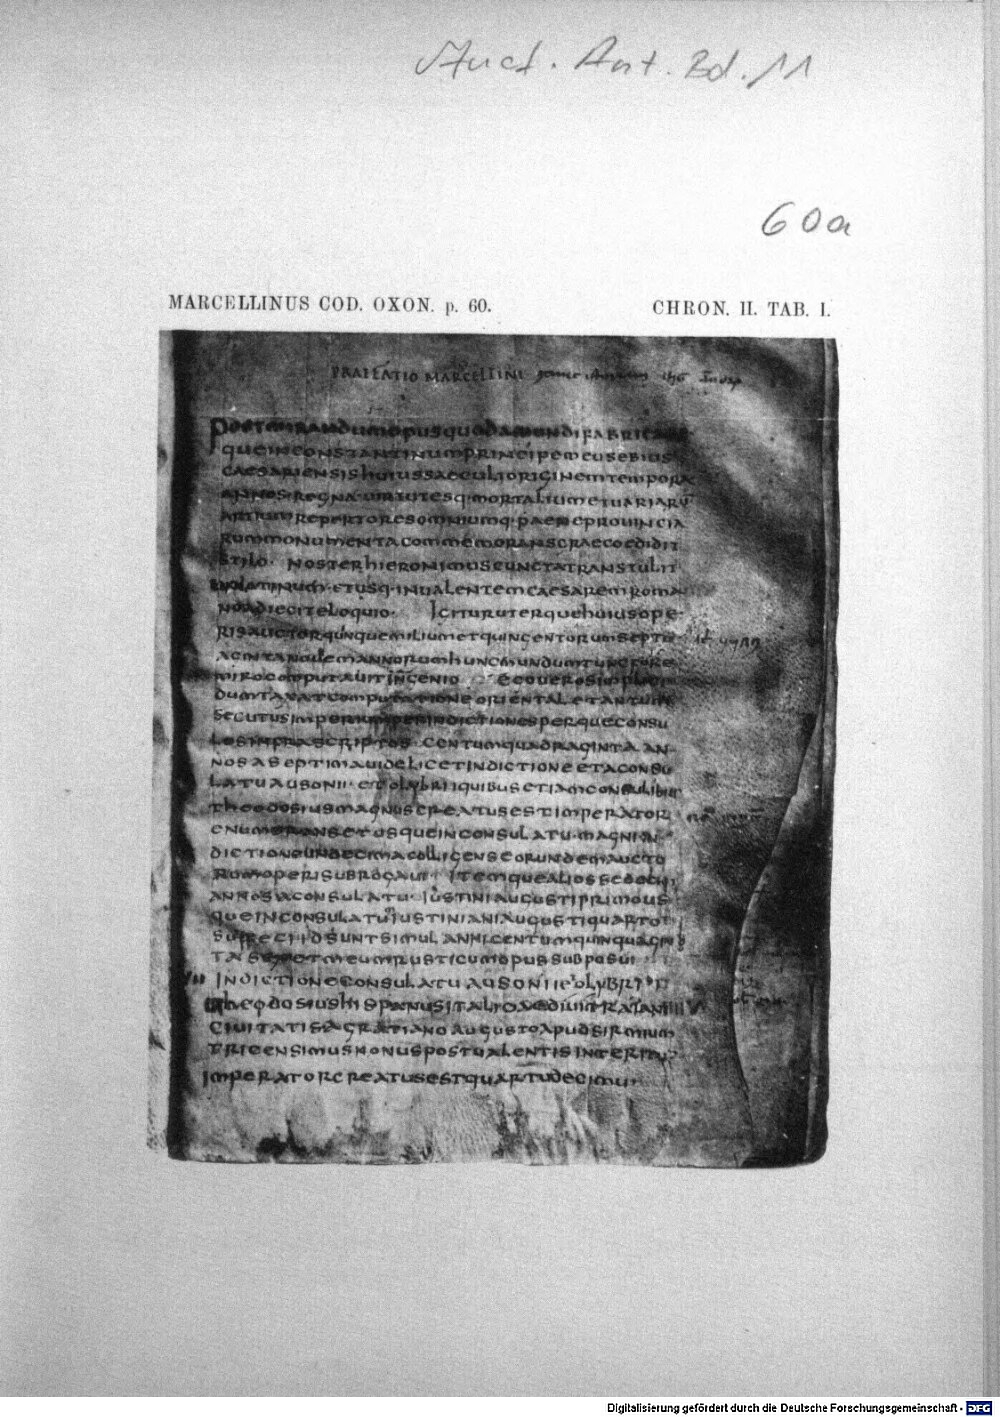 Auct. Ant. Bd. 11
60a
MARCELLINUS COD. OXON. p. 60.
CHRON. II. TAB. I.
PRAEFATIO MARCELLINI
POSTMIRANDUMOPUSQUODAMUNDIFABRICA
QUEINCONSTANTINUMPRINCIPEMEUSEBIUS
CAESARIENSISHUIUSSAECULIORIGINEMTEMPORA
ANNOS·REGNA·UIRTUTESQ·MORTALIUMETUARIARU
ARTIUMREPERTORESOMNIUMQ·PAENEPROUINCIA
RUMMONUMENTACOMMEMORANSGRAECOEDIDIT
STILO· NOSTERHIERONIMUSCUNCTATRANSTULIT
INLATINUM·ETUSQ·INUALENTEMCAESAREMROMA
NOADIECITELOQUIO· IGITURUTERQUEHUIUSOPE
RISAUCTORQUINQUEMILIUMETQUINGENTORUMSEPTU
AGINTA ANNORUMHUNCMUNDUMTUNCFORE
MIROCOMPUTAUITINGENIO EGOUEROSIMPLICI
DUMTAXATCOMPUTATIONEORIENTALETANTUM
SECUTUSIMPERIUMPERINDICTIONESPERQUECONSU
LESINFRASCRIPTOS·CENTUMQUADRAGINTA AN
NOSASEPTIMAUIDELICETINDICTIONEETACONSU
LATUAUSONII·ETOLYBRIIQUIBUSETIAMCONSULIBUS
THEODOSIUSMAGNUSCREATUSESTIMPERATOR
ENUMERANSETUSQUEINCONSULATU·MAGNIIN
DICTIONEUNDECIMACOLLIGENSEORUNDEMAUCTO
RUMOPERISUBROGAUI· ITEMQUEALIOSSEDECIM
ANNOSACONSULATU·IUSTINIAUGUSTIPRIMOUS
QUEINCONSULATUIUSTINIANIAUGUSTIQUARTOT
SUFFECIIDSUNTSIMULANNICENTUMQUINQUAGIN
TA SEX ETMEUMRUSTICUMOPUSSUBPOSUI
INDICTIONECONSULATUAUSONIIETOLYBRI
THEODOSIUSHISPANUSITALICAEDIUITRAIANI
CIUITATISAGRATIANOAUGUSTOAPUDSIRMIUM
TRICENSIMUSNONUSPOSTUALENTISINTERITU
IMPERATORCREATUSESTQUARTODECIMU
Digitalisierung gefördert durch die Deutsche Forschungsgemeinschaft - DFG